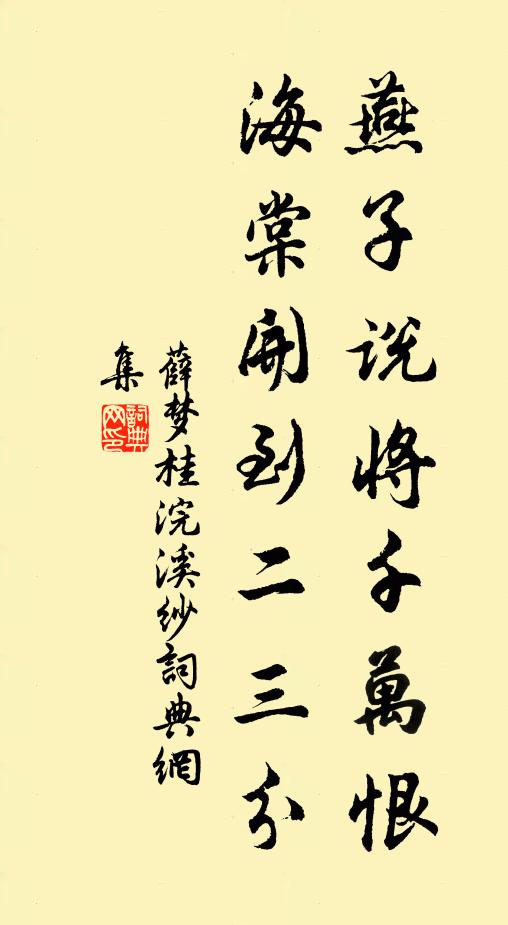 燕子説將千萬恨
海棠開到二三分
薛梦桂浣溪紗詞典網
集
詞典
网印